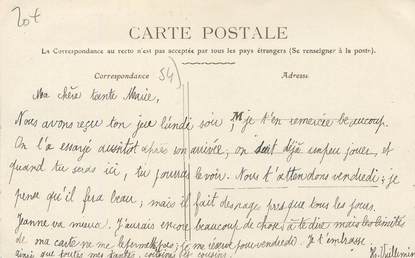 20f
CARTE POSTALE
La Correspondance au recto n'est pas acceptée par tous les pays étrangers (Se renseigner à la poste).
Correspondance
54)
Adresse
Ma chère tante Marie,
Nous avons reçu ton jeu lundi soir, je t'en remercie beaucoup.
On l'a essayé aussitôt après son arrivée, on sait déjà un peu jouer, et
quand tu seras ici, tu pourras le voir. Nous t'attendons vendredi; je
pense qu'il fera beau, mais il fait des orages presque tous les jours.
Jeanne va mieux. J'aurais encore beaucoup de choses à te dire mais les limites
de ma carte ne me le permettent pas; je me réserve pour vendredi. Je t'embrasse
ainsi que toutes mes tantes, cousins et cousines